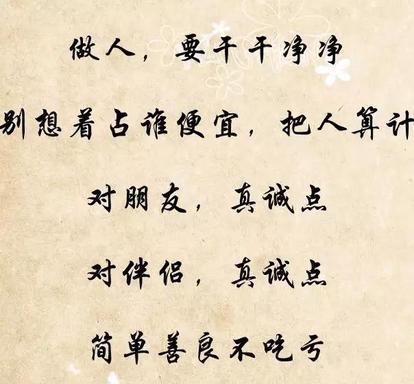 做人，要干干净净
别想着占谁便宜，把人算计
对朋友，真诚点
对伴侣，真诚点
简单善良不吃亏